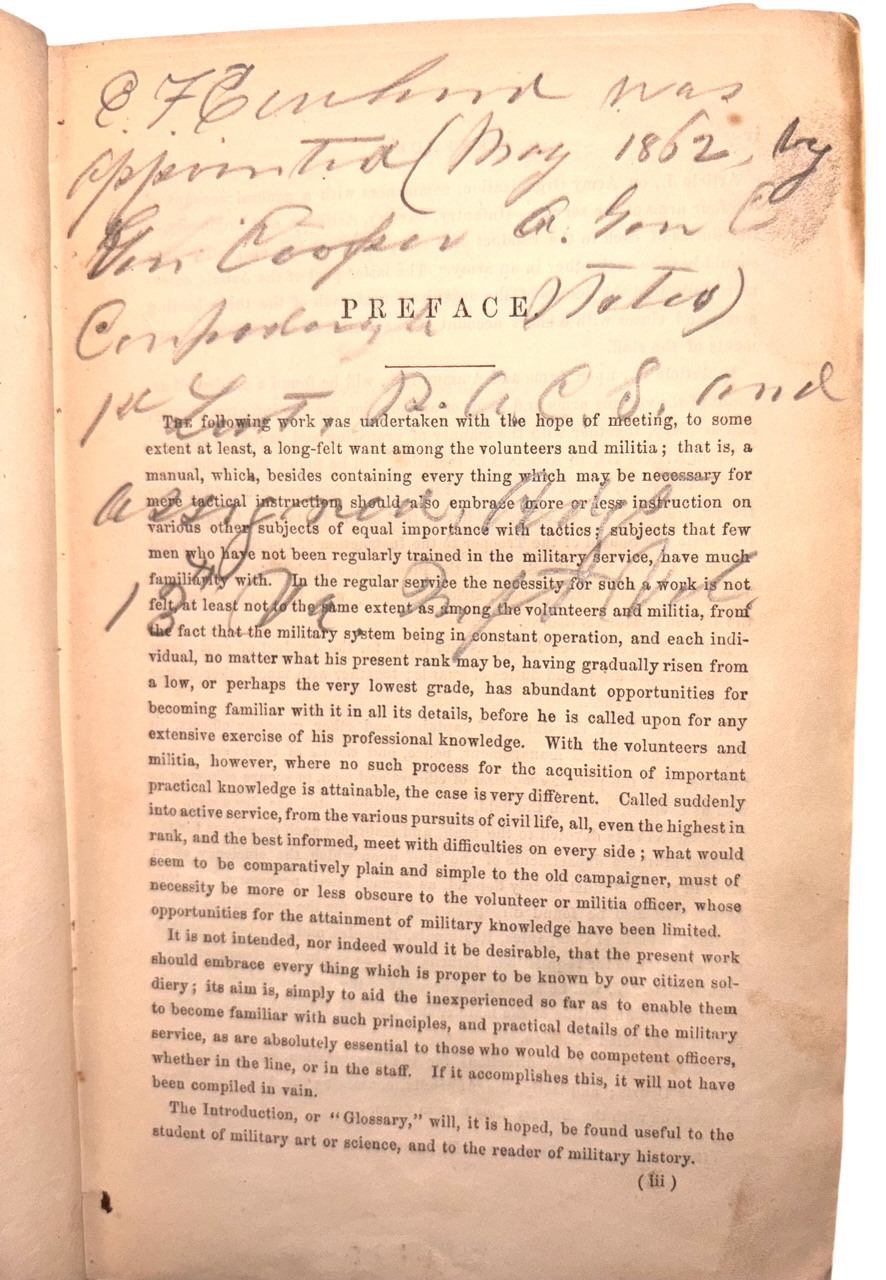 was
appointed (May 1862, by
Gen Cooper A. Gen C
States)
PREFACE.
1st Lieut. P. A. C. S. and
THE following work was undertaken with the hope of meeting, to some
extent at least, a long-felt want among the volunteers and militia; that is, a
manual, which, besides containing every thing which may be necessary for
mere tactical instruction, should also embrace more or less instruction on
various other subjects of equal importance with tactics; subjects that few
men who have not been regularly trained in the military service, have much
familiarity with. In the regular service the necessity for such a work is not
13th Va
felt, at least not to the same extent as among the volunteers and militia, from
the fact that the military system being in constant operation, and each indi-
vidual, no matter what his present rank may be, having gradually risen from
a low, or perhaps the very lowest grade, has abundant opportunities for
becoming familiar with it in all its details, before he is called upon for any
extensive exercise of his professional knowledge. With the volunteers and
militia, however, where no such process for the acquisition of important
practical knowledge is attainable, the case is very different. Called suddenly
into active service, from the various pursuits of civil life, all, even the highest in
rank, and the best informed, meet with difficulties on every side; what would
seem to be comparatively plain and simple to the old campaigner, must of
necessity be more or less obscure to the volunteer or militia officer, whose
opportunities for the attainment of military knowledge have been limited.
It is not intended, nor indeed would it be desirable, that the present work
should embrace every thing which is proper to be known by our citizen sol-
diery; its aim is, simply to aid the inexperienced so far as to enable them
to become familiar with such principles, and practical details of the military
service, as are absolutely essential to those who would be competent officers,
whether in the line, or in the staff. If it accomplishes this, it will not have
been compiled in vain.
The Introduction, or "Glossary," will, it is hoped, be found useful to the
student of military art or science, and to the reader of military history.
(iii)